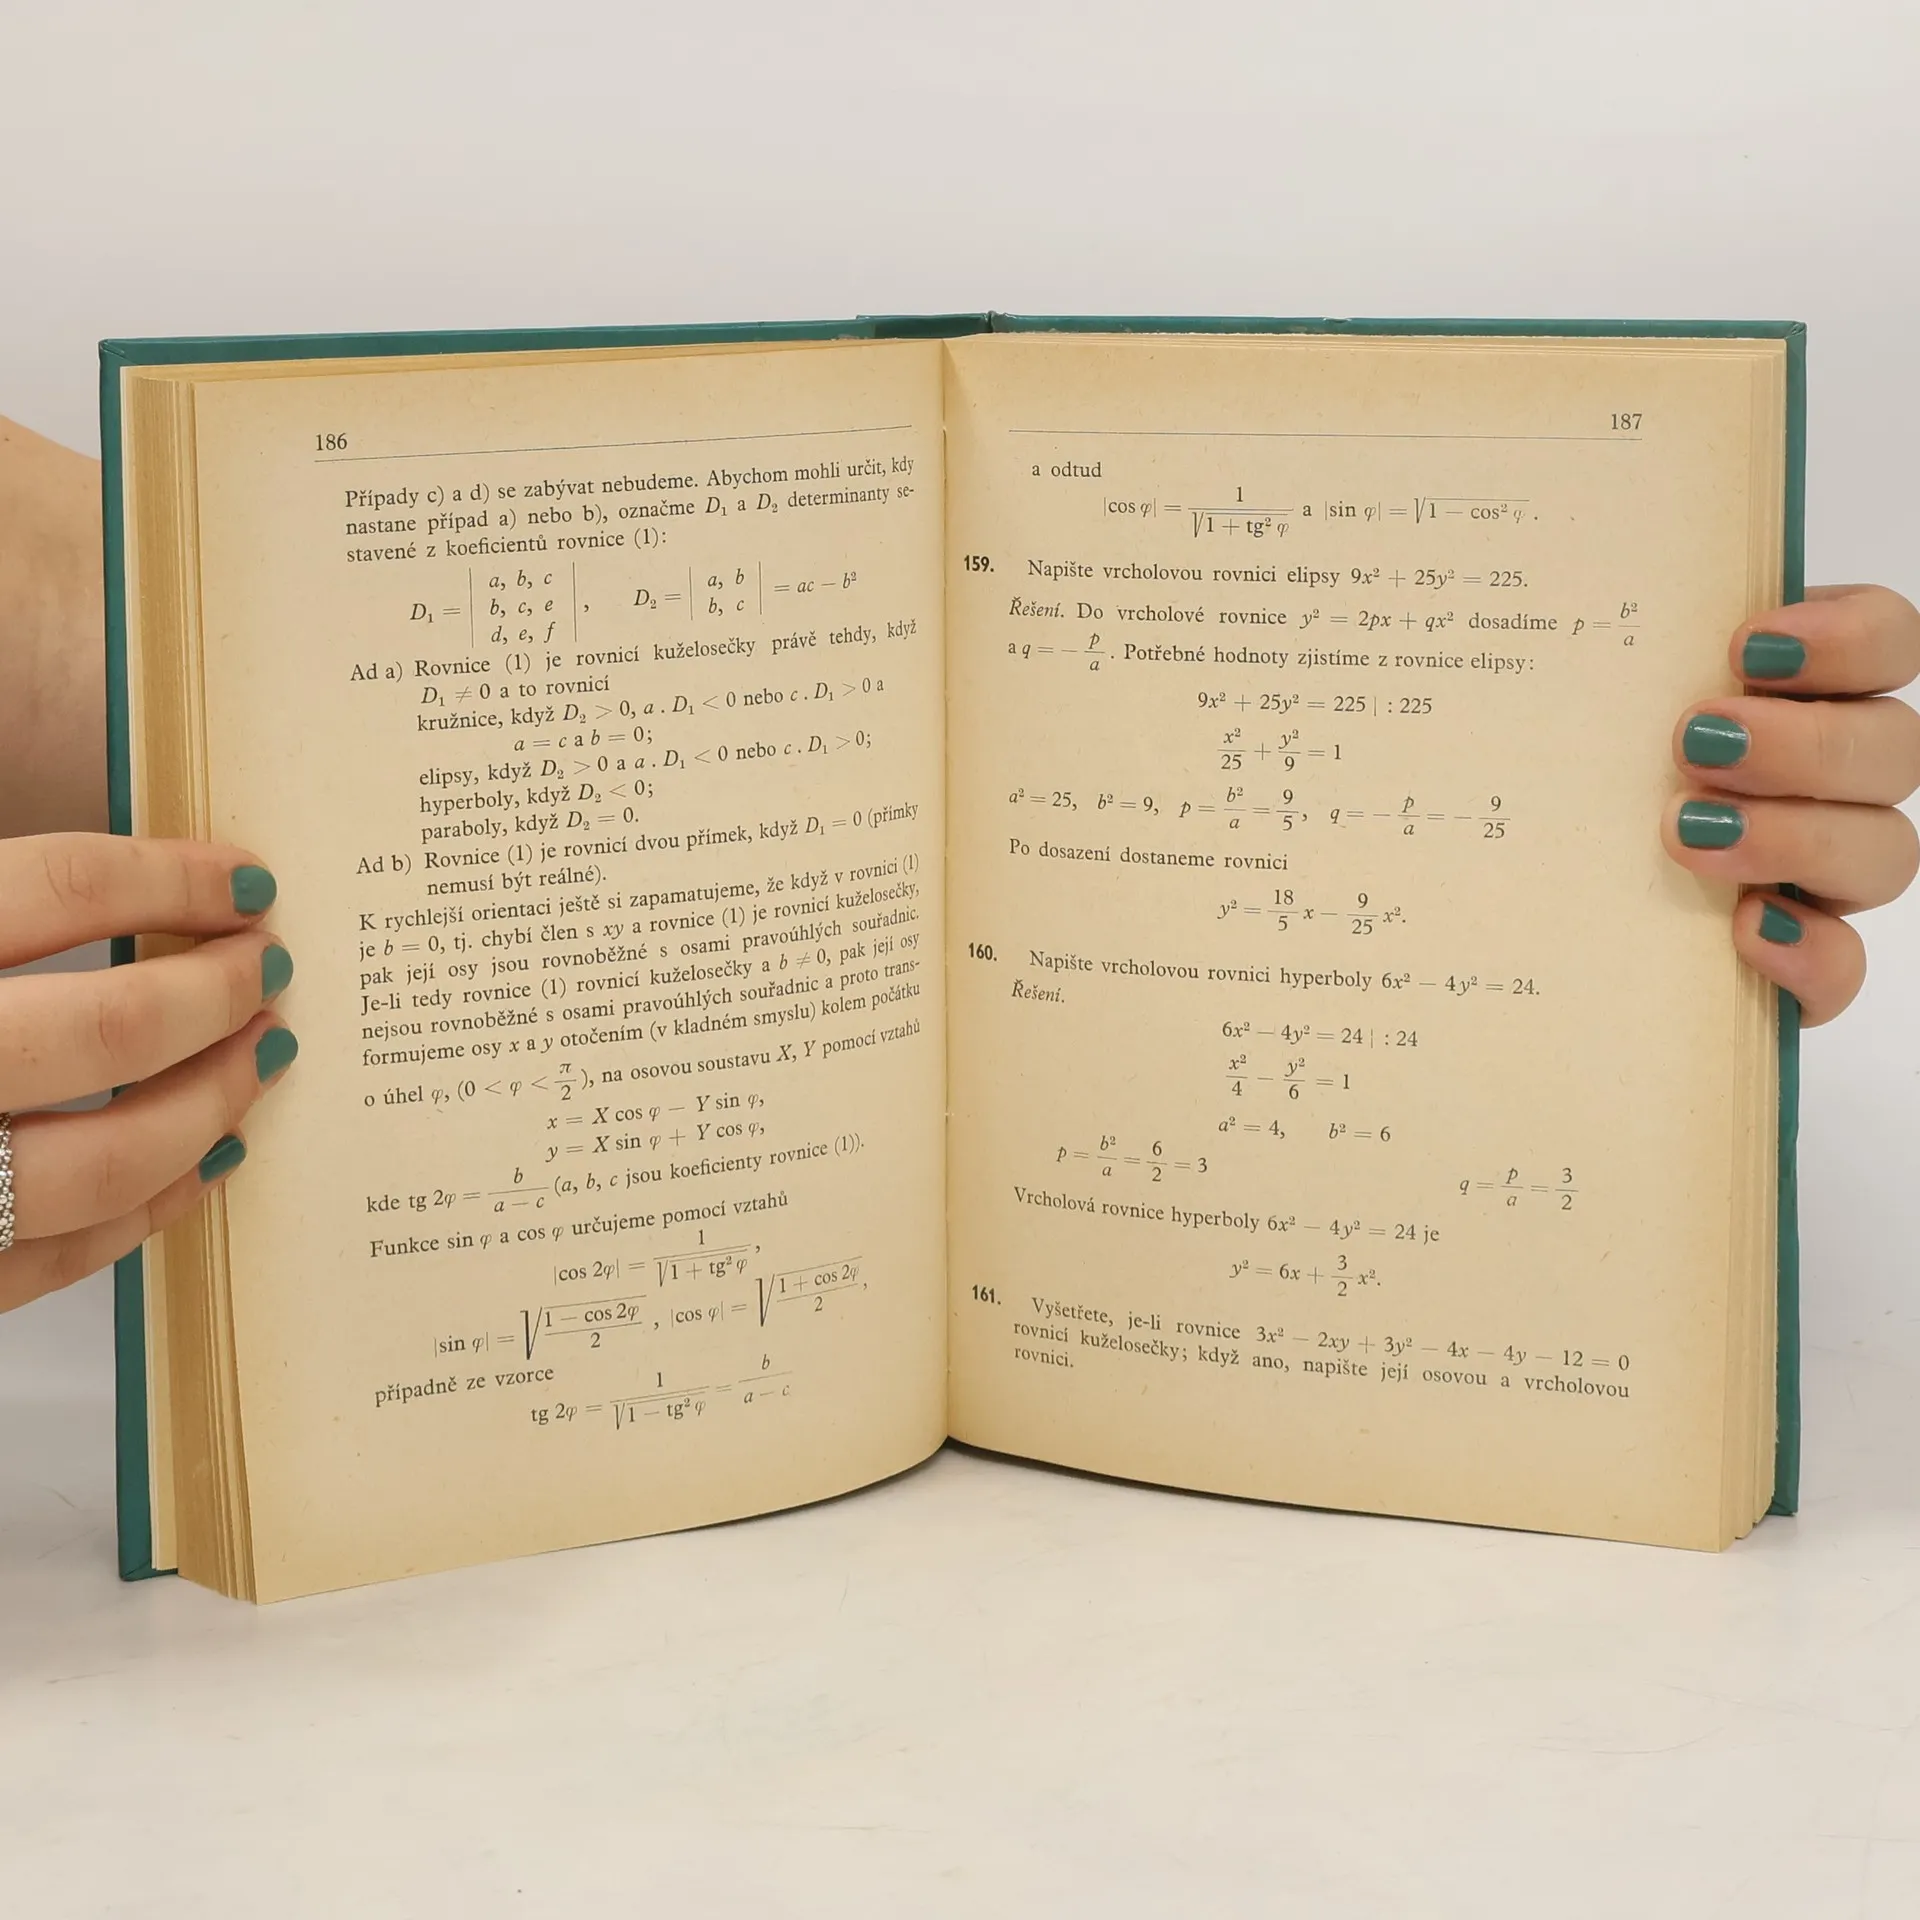 186
Případy c) a d) se zabývat nebudeme. Abychom mohli určit, kdy
nastane případ a) nebo b), označme D₁ a D₂ determinanty se-
stavené z koeficientů rovnice (1):
D₁ = | a, b, c | , D₂ = | a, b | = ac − b²
| b, c, e | | b, c |
| d, e, f |
Ad a) Rovnice (1) je rovnicí kuželosečky právě tehdy, když
D₁ ≠ 0 a to rovnicí
kružnice, když D₂ > 0, a . D₁ < 0 nebo c . D₁ > 0 a
a = c a b = 0;
elipsy, když D₂ > 0 a a . D₁ < 0 nebo c . D₁ > 0;
hyperboly, když D₂ < 0;
paraboly, když D₂ = 0.
Ad b) Rovnice (1) je rovnicí dvou přímek, když D₁ = 0 (přímky
nemusí být reálné).
K rychlejší orientaci ještě si zapamatujeme, že když v rovnici (1)
je b = 0, tj. chybí člen s xy a rovnice (1) je rovnicí kuželosečky,
pak její osy jsou rovnoběžné s osami pravoúhlých souřadnic.
Je-li tedy rovnice (1) rovnicí kuželosečky a b ≠ 0, pak její osy
nejsou rovnoběžné s osami pravoúhlých souřadnic a proto trans-
formujeme osy x a y otočením (v kladném smyslu) kolem počátku
o úhel φ, (0 < φ < π/2), na osovou soustavu X, Y pomocí vztahů
x = X cos φ − Y sin φ,
y = X sin φ + Y cos φ,
kde tg 2φ = b/(a − c) (a, b, c jsou koeficienty rovnice (1)).
Funkce sin φ a cos φ určujeme pomocí vztahů
|cos 2φ| = 1/√(1 + tg² φ),
|sin φ| = √((1 − cos 2φ)/2), |cos φ| = √((1 + cos 2φ)/2),
případně ze vzorce
tg 2φ = 1/√(1 − tg² φ) = b/(a − c)
187
a odtud
|cos φ| = 1/√(1 + tg² φ) a |sin φ| = √(1 − cos² φ).
159. Napište vrcholovou rovnici elipsy 9x² + 25y² = 225.
Řešení. Do vrcholové rovnice y² = 2px + qx² dosadíme p = b²/a
a q = − p/a. Potřebné hodnoty zjistíme z rovnice elipsy:
9x² + 25y² = 225 | : 225
x²/25 + y²/9 = 1
a² = 25, b² = 9, p = b²/a = 9/5, q = − p/a = − 9/25
Po dosazení dostaneme rovnici
y² = 18/5 x − 9/25 x².
160. Napište vrcholovou rovnici hyperboly 6x² − 4y² = 24.
Řešení.
6x² − 4y² = 24 | : 24
x²/4 − y²/6 = 1
a² = 4, b² = 6
p = b²/a = 6/2 = 3 q = p/a = 3/2
Vrcholová rovnice hyperboly 6x² − 4y² = 24 je
y² = 6x + 3/2 x².
161. Vyšetřete, je-li rovnice 3x² − 2xy + 3y² − 4x − 4y − 12 = 0
rovnicí kuželosečky; když ano, napište její osovou a vrcholovou
rovnici.